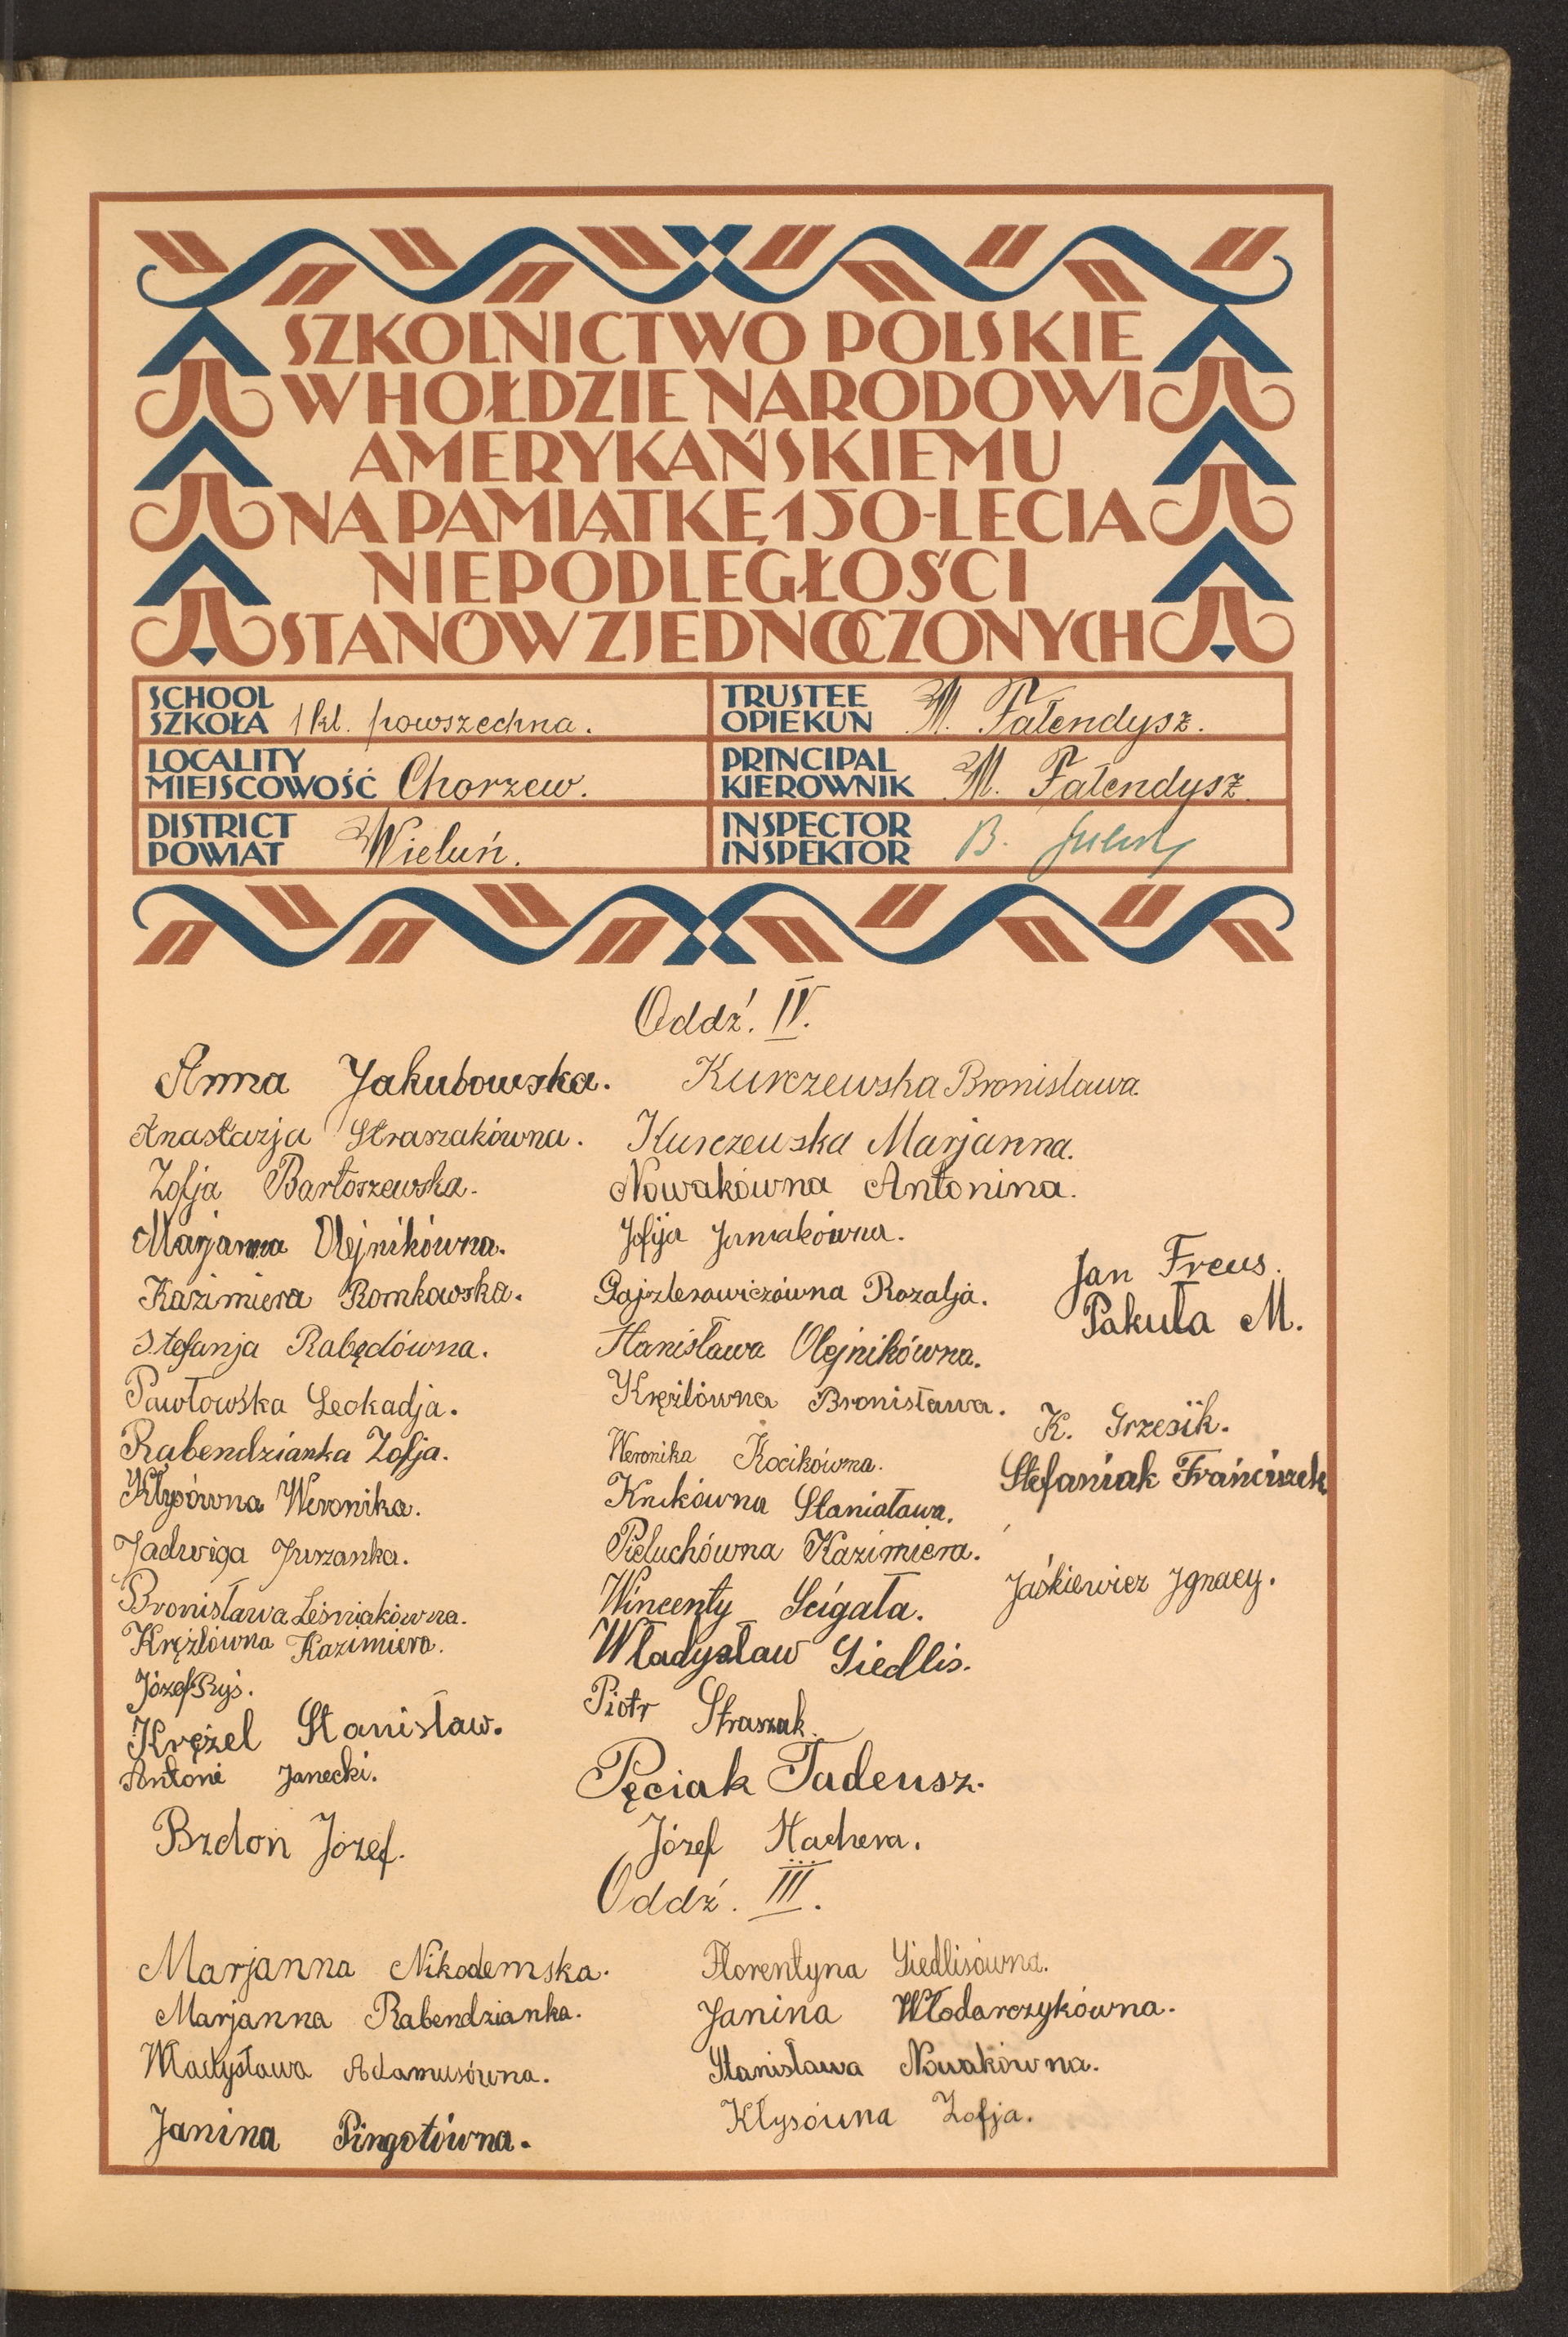 SZKOLNICTWO POLSKIE
W HOŁDZIE NARODOWI
AMERYKAŃSKIEMU
NA PAMIĄTKĘ 150-LECIA
NIEPODLEGŁOŚCI
STANÓW ZJEDNOCZONYCH
SCHOOL
SZKOŁA 1 kl. powszechna.
TRUSTEE
OPIEKUN M. Fałendysz.
LOCALITY
MIEJSCOWOŚĆ Chorzew.
PRINCIPAL
KIEROWNIK M. Fałendysz.
DISTRICT
POWIAT Wieluń.
INSPECTOR
INSPEKTOR B.
Oddź. IV.
Anna Jakubowska.
Anastazja Straszakówna.
Zofja Bartoszewska.
Marjanna Olejnikówna.
Kazimiera Romkowska.
Stefanja Rabędówna.
Pawłowska Leokadja.
Rabendzianka Zofja.
Kłysówna Weronika.
Jadwiga Jurzanka.
Bronisława Leśniakówna.
Krężlówna Kazimiera.
Józef Ryś.
Krężel Stanisław.
Antoni Janecki.
Brdoń Józef.
Kurczewska Bronisława.
Kurczewska Marjanna.
Nowakówna Antonina.
Zofija Janiakówna.
Gajzlerowiczówna Rozalja.
Stanisława Olejnikówna.
Krężlówna Bronisława.
Weronika Kocikówna.
Knikówna Stanisława.
Pieluchówna Kazimiera.
Wincenty Ścigała.
Władysław Siedlis.
Piotr Straszak.
Pęciak Tadeusz.
Józef Stachera.
Jan Freus.
Pakuła M.
K. Grzesik.
Stefaniak Franciszek
Jaśkiewicz Ignacy.
Oddź. III.
Marjanna Nikodemska.
Marjanna Rabendzianka.
Władysława Adamusówna.
Janina Pingotówna.
Florentyna Siedlisówna.
Janina Włodarczykówna.
Stanisława Nowakówna.
Kłysówna Zofja.